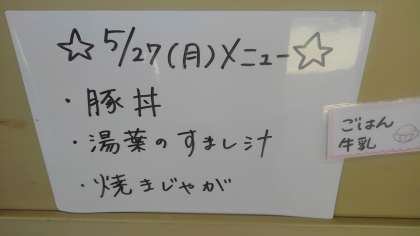 ☆5/27(月)メニュー☆
・豚丼
・湯葉のすまし汁
・焼きじゃが
ごはん
牛乳